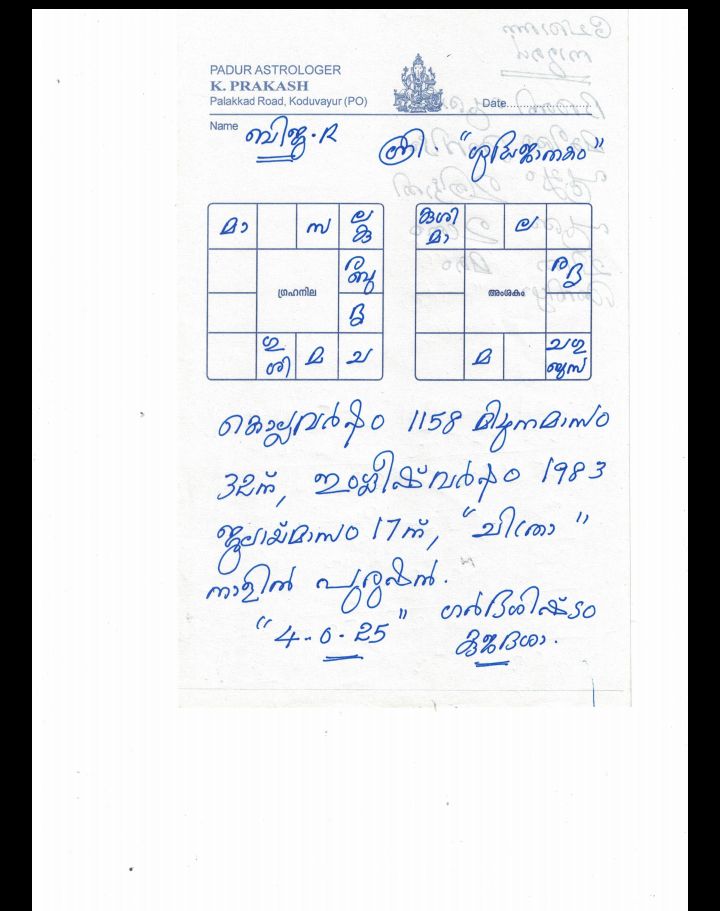 PADUR ASTROLOGER
K. PRAKASH
Palakkad Road, Koduvayur (PO)
Date............................
Name ബിജു.R
ശ്രീ. "ശുദ്ധജാതകം"
മാ സ ല
കു
ര
ബു
ഗ്രഹനില
ശു
ഗു
ശി മ ച
കു ശി
മാ ല
ര
അംശകം
മ ച ഗു
ബു സ
കൊല്ലവർഷം 1158 മിഥുനമാസം
32ന്, ഇംഗ്ലീഷ് വർഷം 1983
ജൂലായ്മാസം 17ന്, "ചിത്രാ"
നാളിൽ പുരുഷൻ.
"4-0-25" ഗർഭശിഷ്ടം
കുജദശാ.